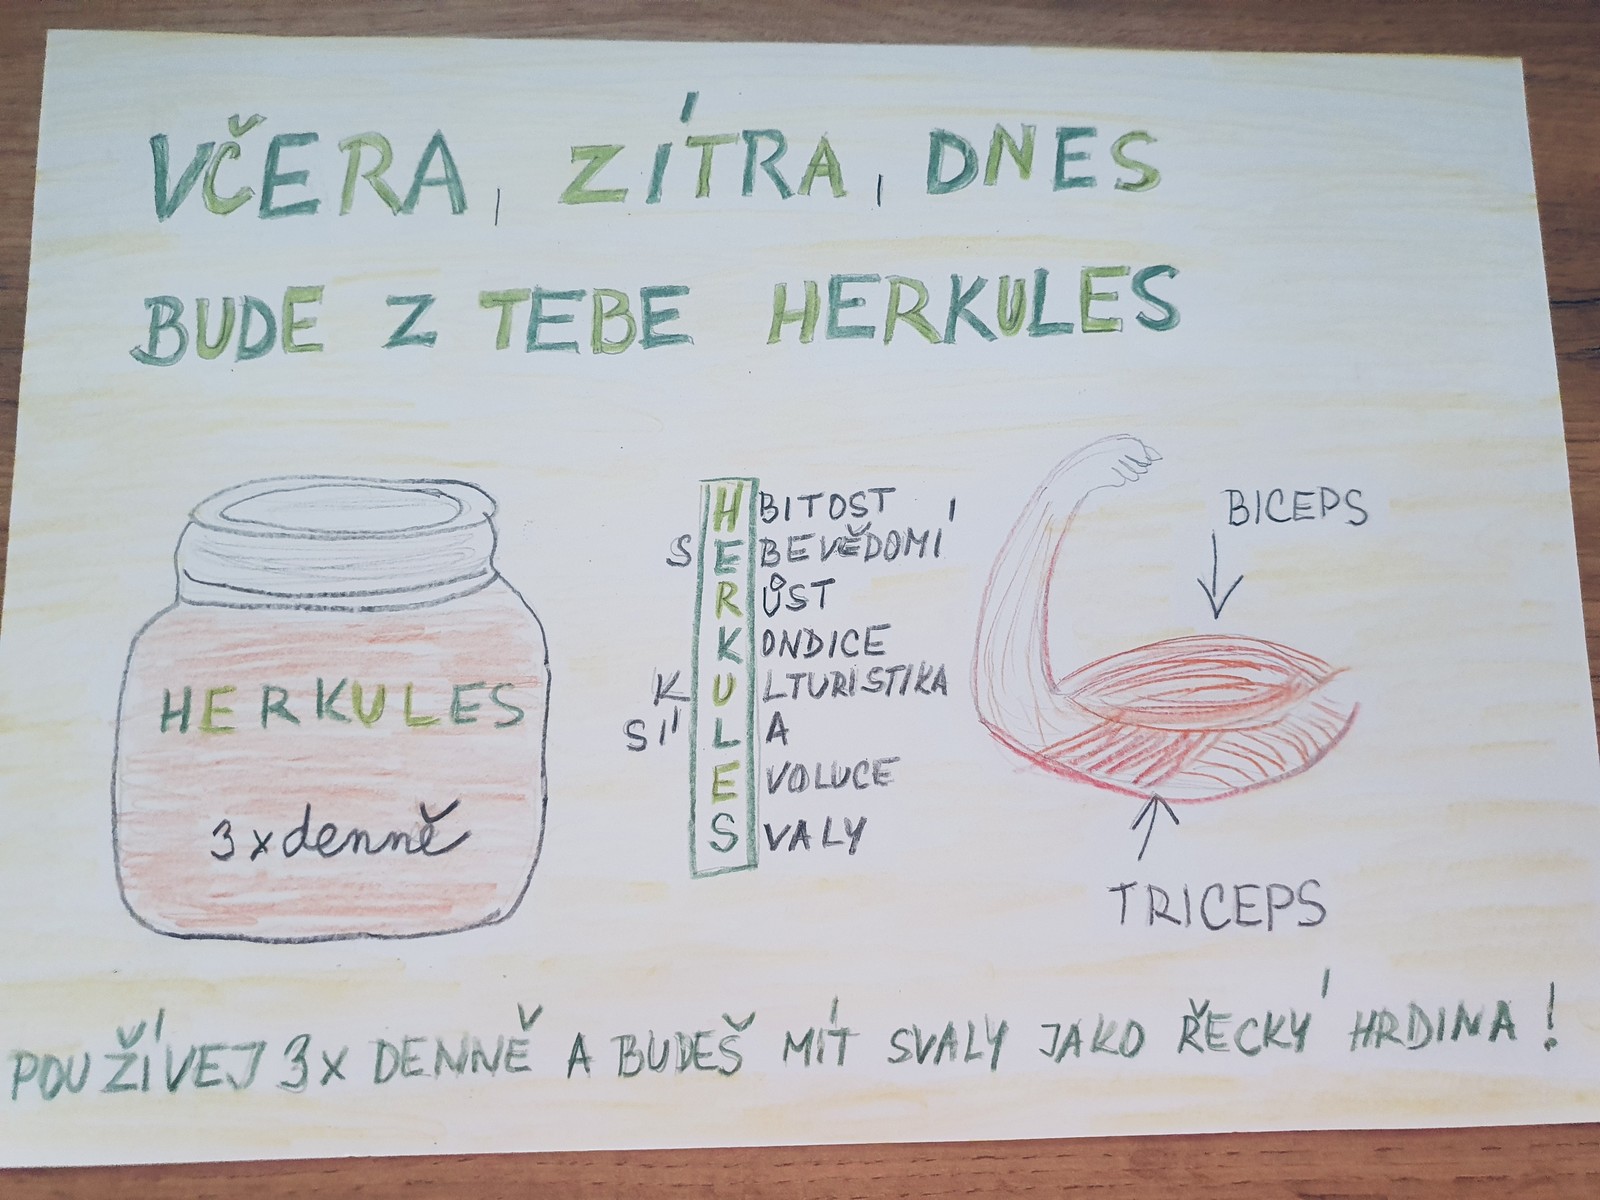 VČERA, ZÍTRA, DNES
BUDE Z TEBE HERKULES
HERKULES
3x denně
HBITOST
SEBEVĚDOMÍ
RŮST
KONDICE
KULTURISTIKA
SÍLA
EVOLUCE
SVALY
BICEPS
TRICEPS
POUŽÍVEJ 3x DENNĚ A BUDEŠ MÍT SVALY JAKO ŘECKÝ HRDINA!